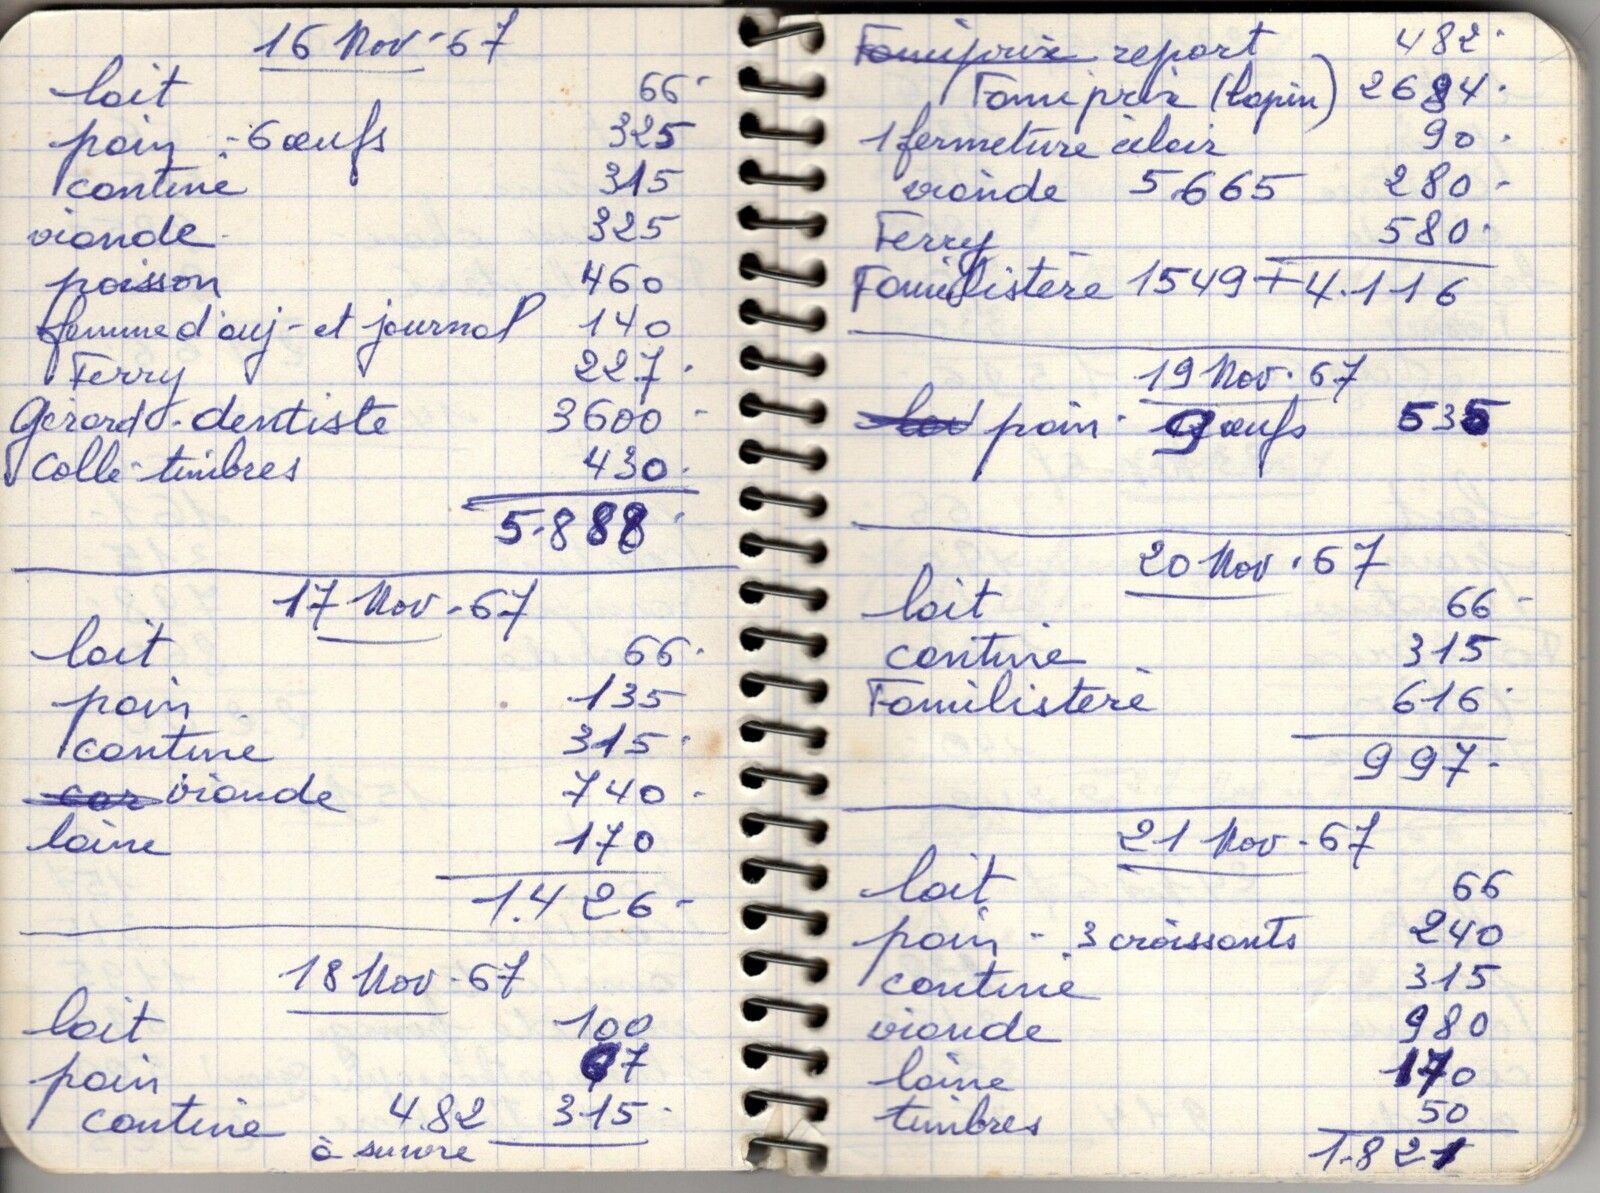 16 Nov. 67
lait 66.
pain - 6 œufs 325
cantine 315
viande 325
poisson 460
femme d'auj - et journal 140
Ferry 227.
Gérard - dentiste 3600 -
colle - timbres 430.
5.888.
17 Nov. 67
lait 66.
pain 135
cantine 315.
viande 740 -
laine 170
1.426 -
18 Nov. 67
lait 100
pain 67
cantine 482 315.
à suivre
Famiprix report 482.
Famiprix (lapin) 2684.
1 fermeture éclair 90.
viande 5.665 280 -
Ferry 580.
Familistère 1549 + 4.116
19 Nov. 67
pain - 9 œufs 535
20 Nov. 67
lait 66 -
cantine 315
Familistère 616.
997.
21 Nov. 67
lait 66
pain - 3 croissants 240
cantine 315
viande 980
laine 170
timbres 50
1.821